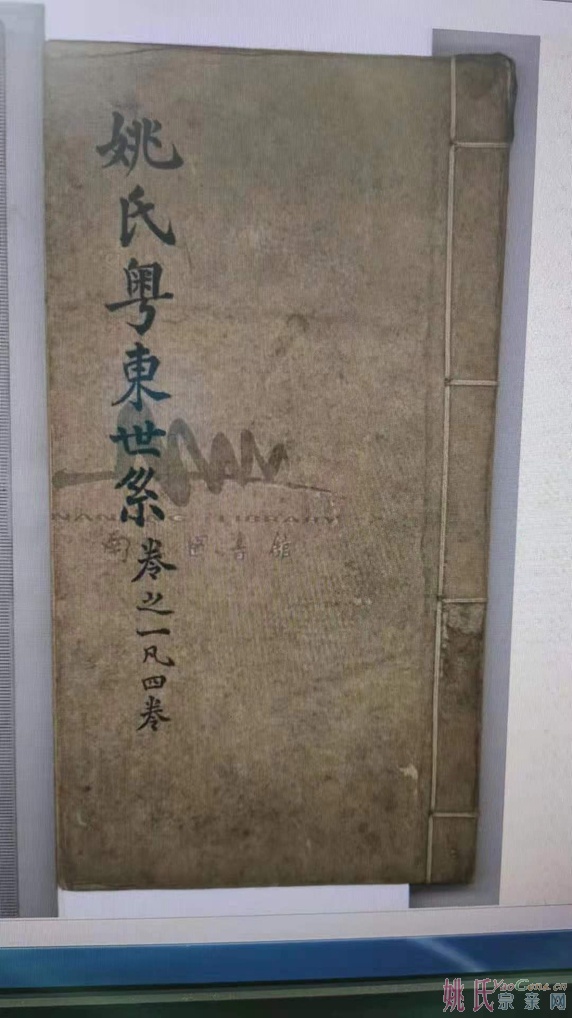 姚氏粤東世系
卷之一凡四卷
NANJING LIBRARY
南京圖書館
姚氏
YaoCome.cn
宗亲网